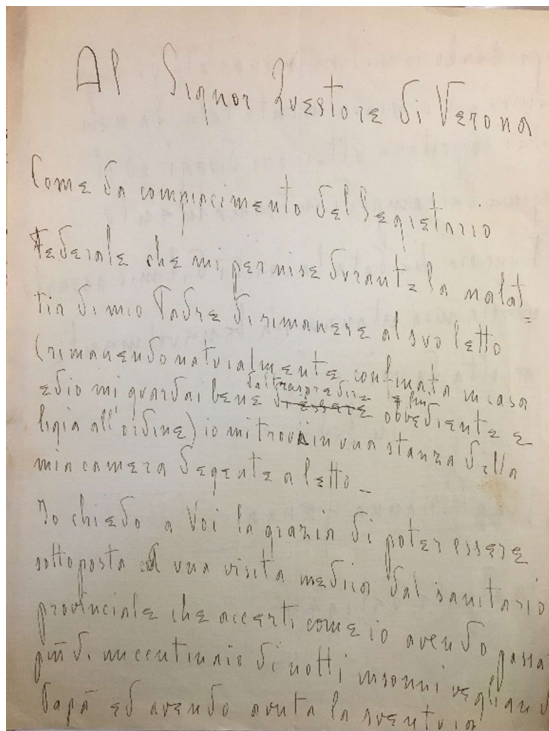 Al Signor Questore di Verona
Come da compiacimento del Segretario
Federale che mi permise durante la malat=
tia di mio Padre di rimanere al suo letto
(rimanendo naturalmente confinata in casa
dal trasgredire e fui
ed io mi guardai bene di essere obbediente e
ligia all'ordine) io mi trovai in una stanza della
mia camera degente a letto_
Io chiedo a Voi la grazia di poter essere
sottoposta ad una visita medica dal sanitario
provinciale che accerti come io avendo passa
più di un centinaio di notti insonni vegliand
Papà ed avendo avuta la sventura